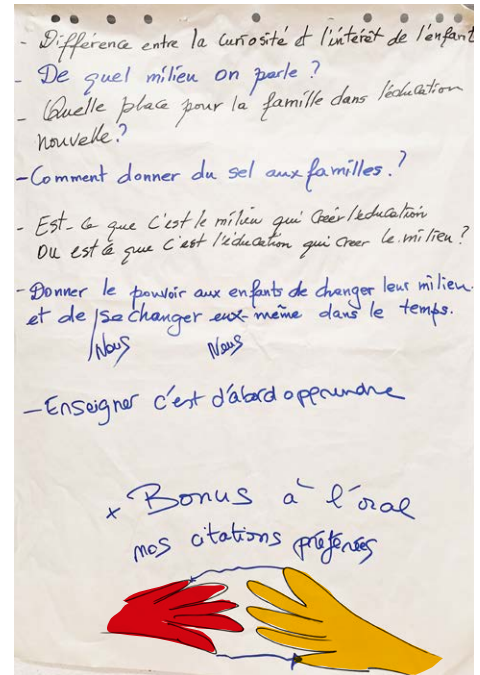 - Différence entre la curiosité et l'intérêt de l'enfant
- De quel milieu on parle ?
- Quelle place pour la famille dans l'éducation
nouvelle ?
- Comment donner du sel aux familles ?
- Est-ce que c'est le milieu qui créer l'éducation
OU est ce que c'est l'éducation qui creer le milieu ?
- Donner le pouvoir aux enfants de changer leur milieu
et de se changer eux-même dans le temps.
Nous Nous
- Enseigner c'est d'abord apprendre
+ Bonus à l'oral
nos citations préférées